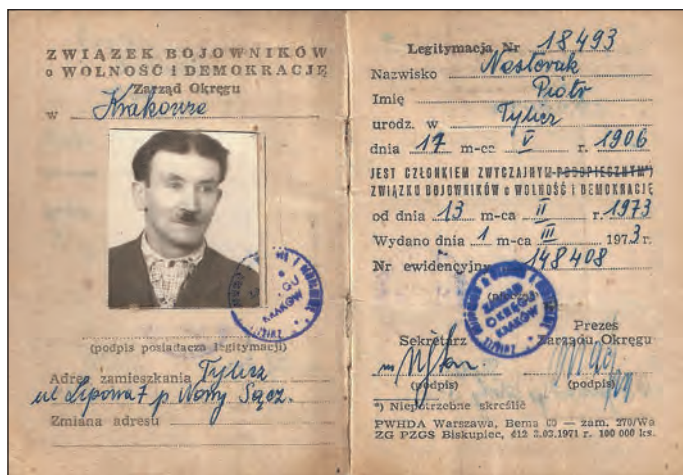 ZWIĄZEK BOJOWNIKÓW
o WOLNOŚĆ i DEMOKRACJĘ
Zarząd Okręgu
w Krakowie
(podpis posiadacza legitymacji)
Adres zamieszkania Tylicz
ul Lipowa 7 p. Nowy Sącz.
Zmiana adresu
Legitymacja Nr 18493
Nazwisko
Imię Piotr
urodz. w Tylicz
dnia 17 m-ca V r. 1906
JEST CZŁONKIEM ZWYCZAJNYM-PODOPIECZNYM*)
ZWIĄZKU BOJOWNIKÓW o WOLNOŚĆ i DEMOKRACJĘ
od dnia 13 m-ca II r. 1973
Wydano dnia 1 m-ca III 1973 r.
Nr ewidencyjny 148408
ZARZĄD
OKRĘGU
KRAKÓW
Sekretarz
Prezes
Zarządu Okręgu
(podpis)
(podpis)
*) Niepotrzebne skreślić
PWHDA Warszawa, Bema 60 — zam. 270/Wa
ZG PZGS Biskupiec, 612 3.03.1971 r. 100 000 ks.